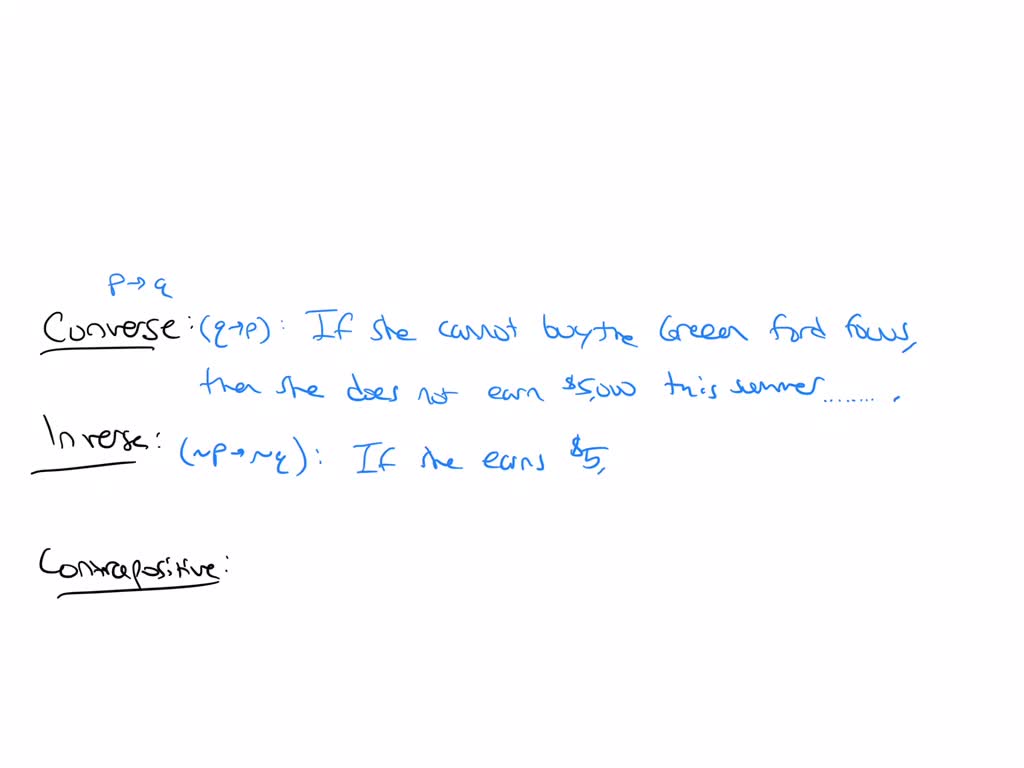 p→q
Converse: (q→p): If she cannot buy the Green Ford Focus,
then she does not earn $5,000 this summer ........ .
Inverse: (~p→~q): If she earns $5,
Contrapositive: